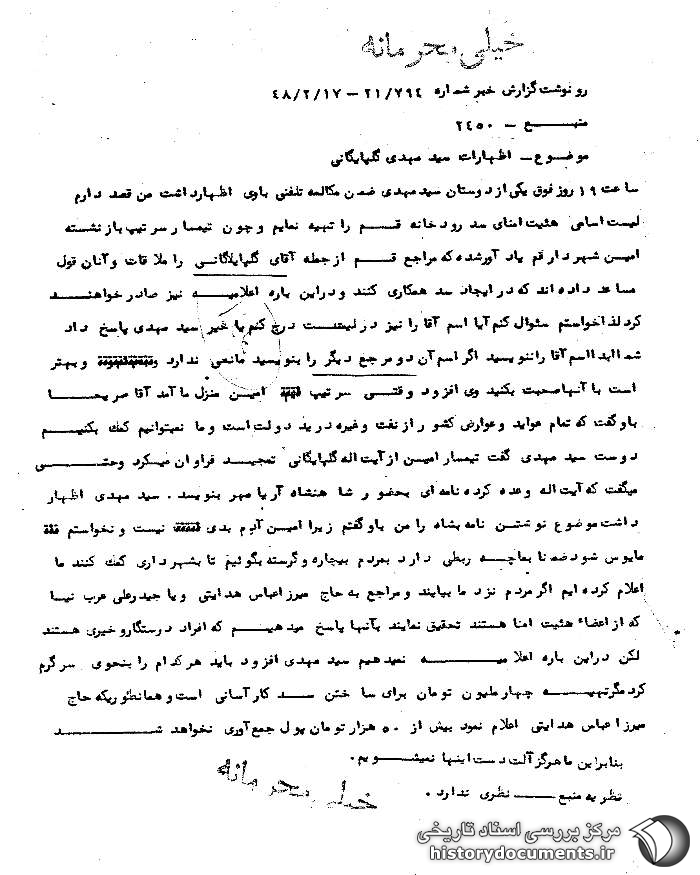 خیلی محرمانه
رونوشت گزارش خبر شماره ۲۱/۷۹۴ - ۴۸/۲/۱۷
منبـــع - ۲۴۵۰
موضوع - اظهارات سید مهدی گلپایگانی
ساعت ۱۹ روز فوق یکی از دوستان سید مهدی ضمن مکالمه تلفنی باوی اظهارداشت من قصد دارم
لیست اسامی هئیت امنای سد رودخانه قــم را تهیه نمایم و چون تیمسار سرتیپ بازنشسته
امین شهردار قم یاد آور شده که مراجع قــم از جمله آقای گلپایگانــی را ملاقات و آنان قول
مساعد داده اند که در ایجاد سد همکاری کنند و در این باره اعلامیــه نیز صادر خواهنــد
کرد لذا خواستم سئوال کنم آیا اسم آقا را نیز در لیست درج کنم یا خیر سید مهدی پاسخ داد
شما ابدا اسم آقا را ننویسید اگر اسم آن دو مرجع دیگر را بنویسید مانعی ندارد و بهتر
است با آنها صحبت بکنید وی افزود وقتــی سرتیپ امین منزل ما آمد آقا صریحــا
باو گفت که تمام عواید و عوارض کشور از نفت و غیره در ید دولت است و ما نمیتوانیم کمک بکنیــم
دوست سید مهدی گفت تیمسار امین از آیت اله گلپایگانی تمجید فراوان میکرد و حتــی
میگفت که آیت اله وعده کرده نامه ای بحضور شاهنشاه آریامهر بنویسد . سید مهدی اظهار
داشت موضوع نوشتن نامه بشاه را من باو گفتم زیرا امین آدم بدی نیست و نخواستم
مایوس شود ضمنا بماچــه ربطی دارد بمردم بیچاره و گرسنه بگوئیم تا بشهرداری کمک کنند ما
اعلام کرده ایم اگر مردم نزد ما بیایند و مراجع به حاج میرزا عباس هدایتی و یا حیدر علی عرب نیــا
که از اعضاء هئیت امنا هستند تحقیق نمایند بآنها پاسخ میدهیــم که افراد درستکار و خیری هستند
لکن در این باره اعلامیــه نمیدهیم سید مهدی افزود باید هر کدام را بنحوی سرگرم
کرد مگر تهیــه چهار ملیون تومان برای ساختن ســد کار آسانی است و همانطوریکه حاج
میرزا عباس هدایتی اعلام نمود بیش از ۵۰ هزار تومان پول جمع آوری نخواهد شــد
بنابراین ما هرگز آلت دست اینها نمیشــویم .
نظریه منبع ــ نظری ندارد .
خیلی محرمانه
مرکز بررسی اسناد تاریخی
historydocuments.ir